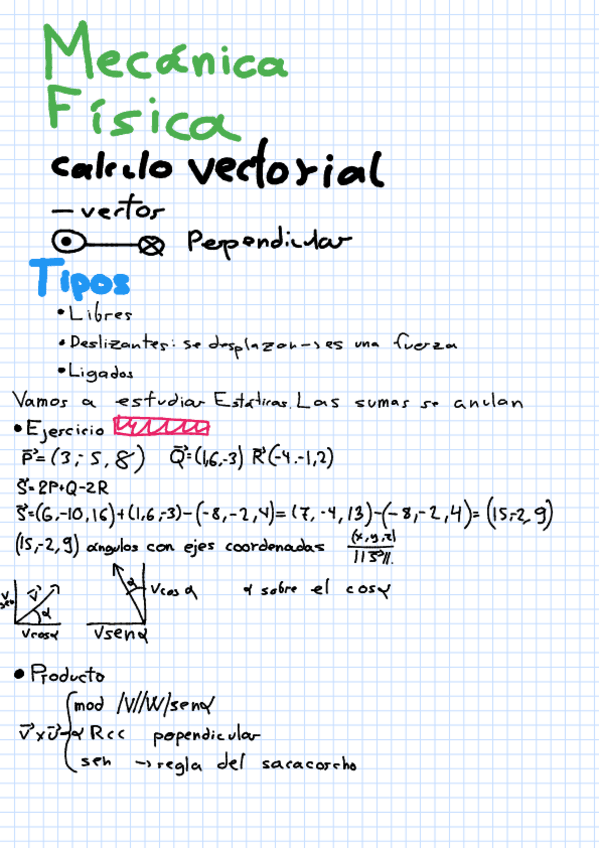 Mecánica
Física
calculo vectorial
– vector
Perpendicular
Tipos
• Libres
• Deslizantes: se desplazan → es una fuerza
• Ligados
Vamos a estudiar Estáticas. Las sumas se anulan
• Ejercicio
P⃗ = (3,-5,8) Q⃗ = (1,6,-3) R⃗ (-4,-1,2)
S⃗ = 2P+Q-2R
S⃗ = (6,-10,16)+(1,6,-3)-(-8,-2,4)= (7,-4,13)-(-8,-2,4)= (15,-2,9)
(15,-2,9) ángulos con ejes coordenadas (x,y,z)/||S⃗||.
V⃗ α Vcosα
α Vcos α Vsenα
α sobre el cosα
• Producto
mod /V//W/senα
V⃗ x U⃗ Rcc perpendicular
sen → regla del sacacorcho